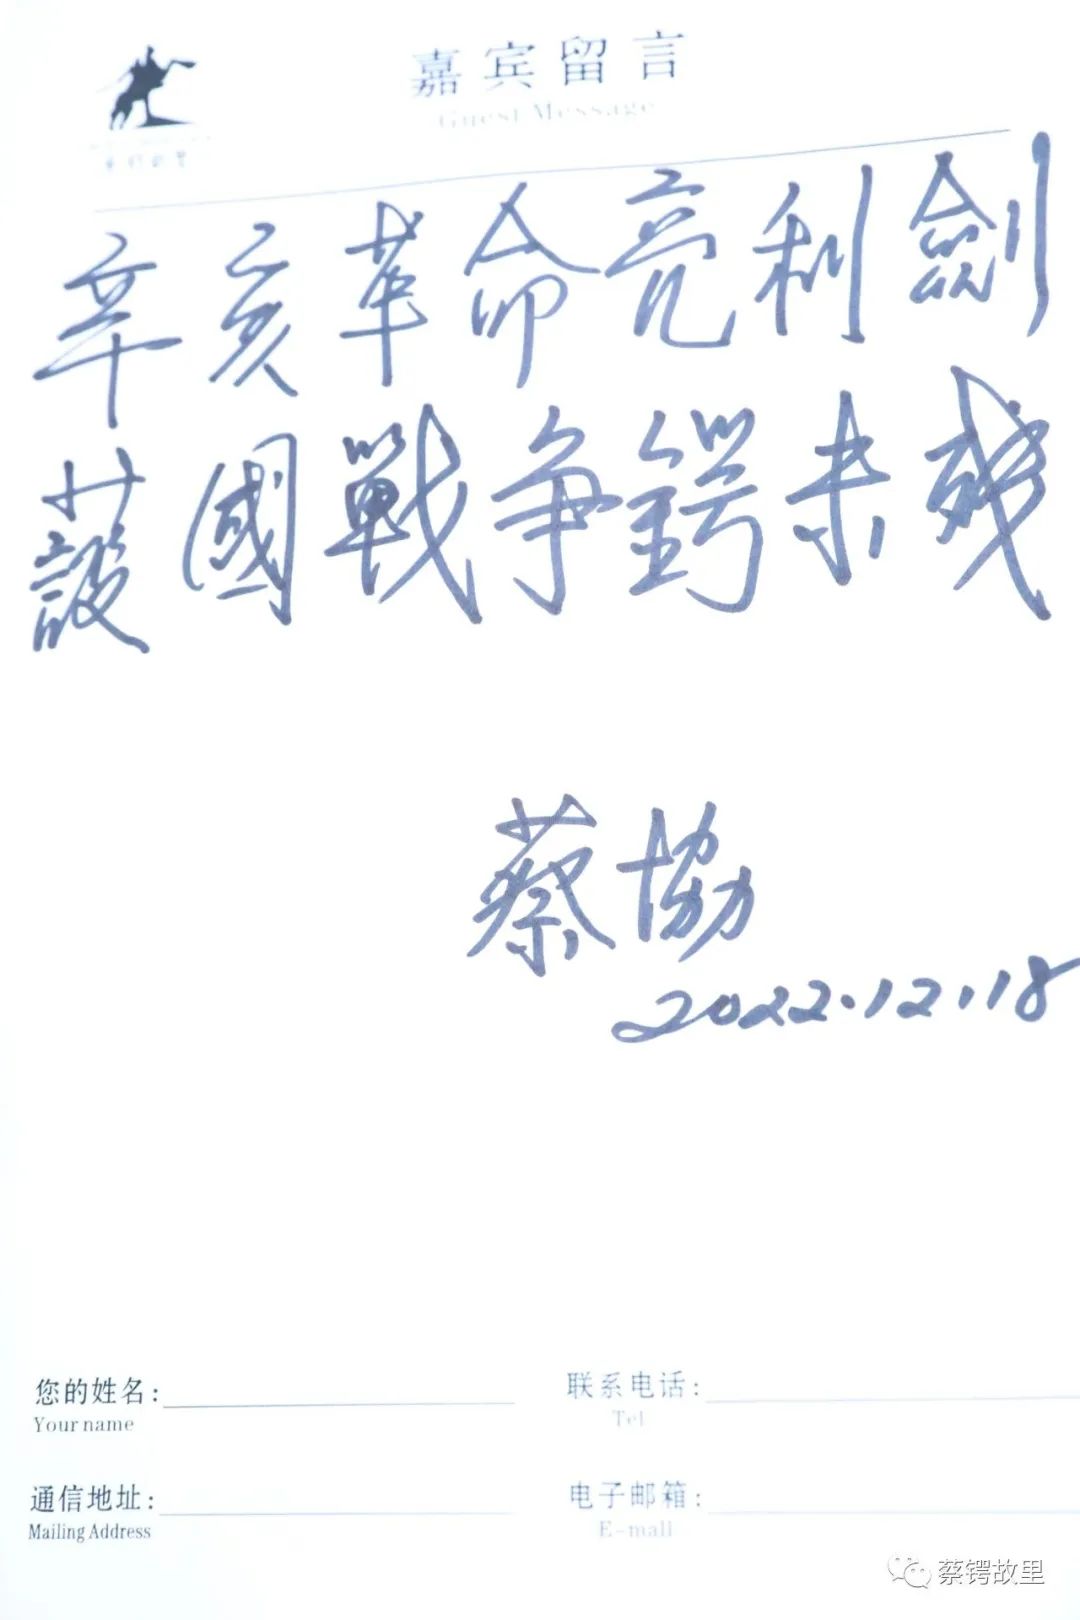 嘉宾留言
Guest Message
辛亥革命亮利劍
護國戰争鍔未殘
蔡協
2022.12.18
您的姓名：
Your name
联系电话：
Tel
通信地址：
Mailing Address
电子邮箱：
E-mail
蔡锷故里